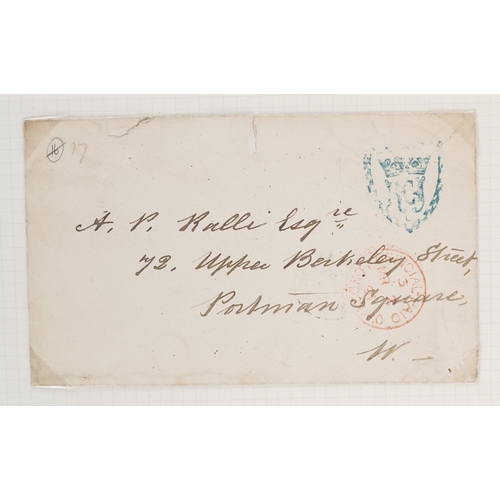 16 17
A. P. Ralli Esqre
72. Upper Berkeley Street,
Portman Square,
W. —
OFFICIAL PAID